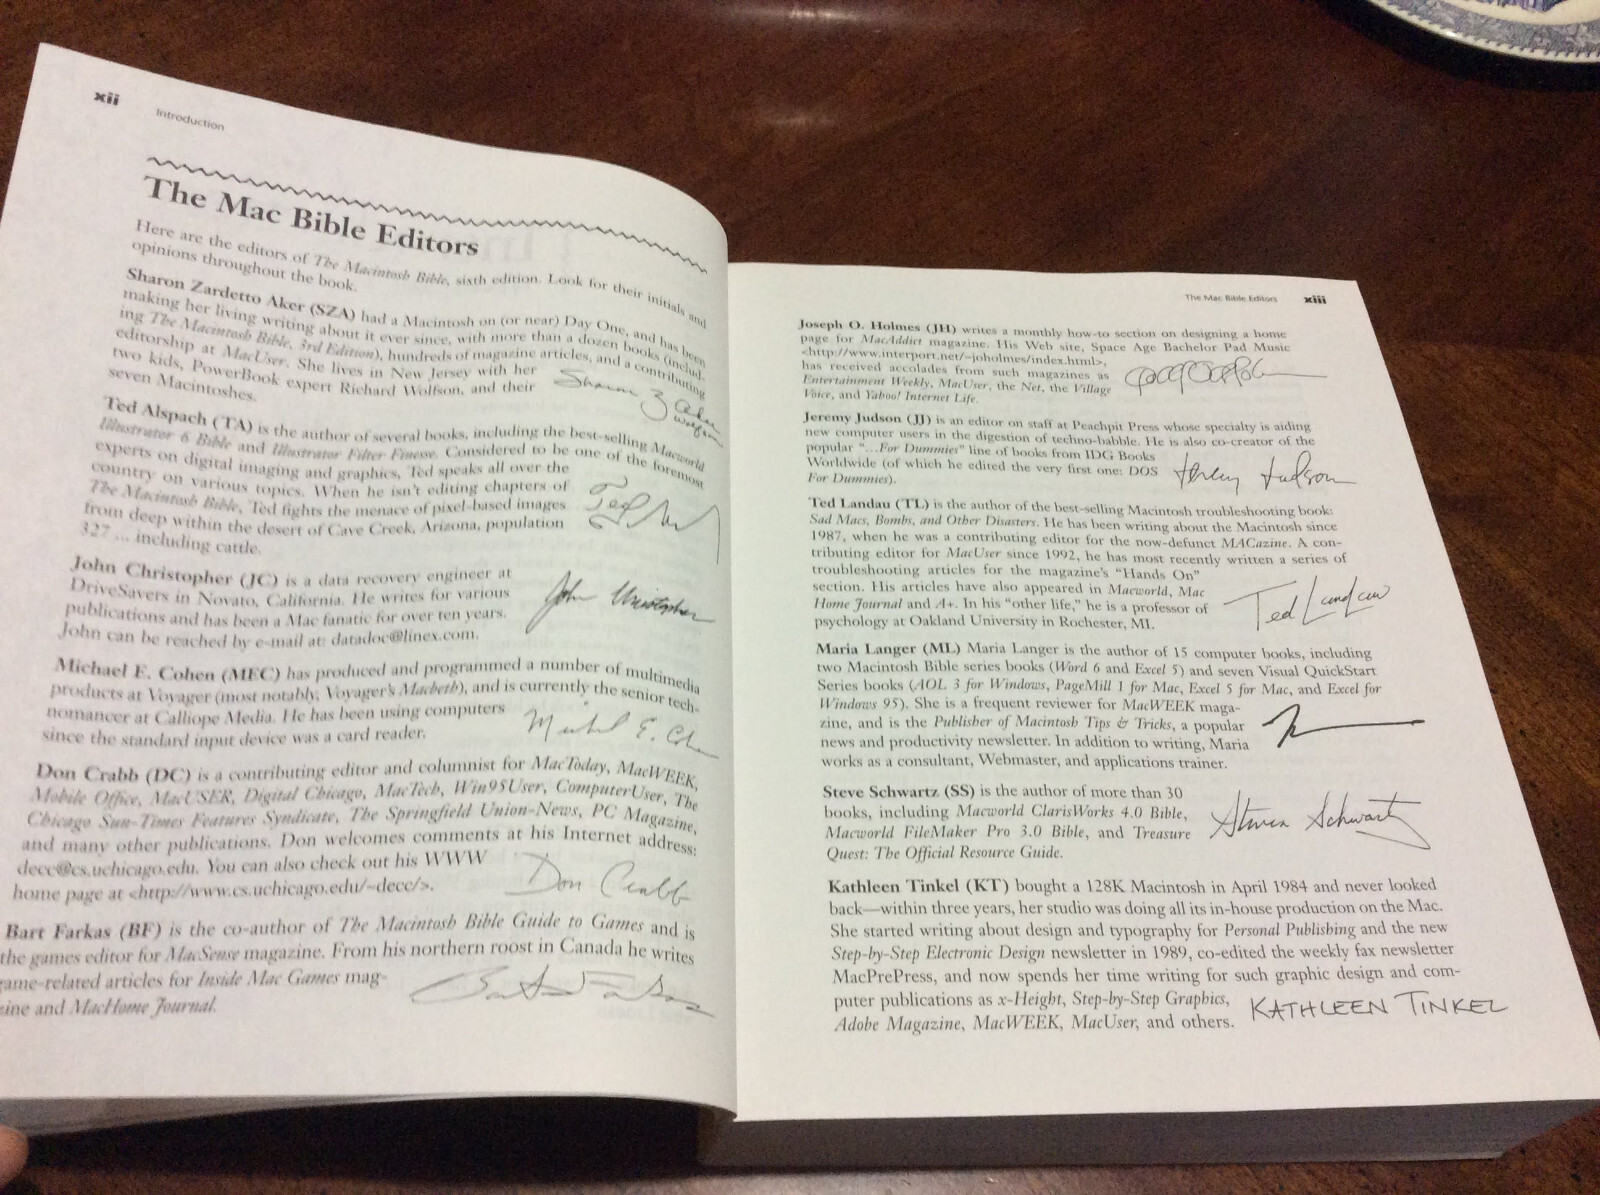 xii
Introduction
The Mac Bible Editors
Here are the editors of The Macintosh Bible, sixth edition. Look for their initials and
opinions throughout the book.
Sharon Zardetto Aker (SZA) had a Macintosh on (or near) Day One, and has been
making her living writing about it ever since, with more than a dozen books (includ-
ing The Macintosh Bible, 3rd Edition), hundreds of magazine articles, and a contributing
editorship at MacUser. She lives in New Jersey with her
two kids, PowerBook expert Richard Wolfson, and their
seven Macintoshes.
Sharon Z Aker
Wolfson
Ted Alspach (TA) is the author of several books, including the best-selling Macworld
Illustrator 6 Bible and Illustrator Filter Finesse. Considered to be one of the foremost
experts on digital imaging and graphics, Ted speaks all over the
country on various topics. When he isn't editing chapters of
The Macintosh Bible, Ted fights the menace of pixel-based images
from deep within the desert of Cave Creek, Arizona, population
327 ... including cattle.
Ted
John Christopher (JC) is a data recovery engineer at
DriveSavers in Novato, California. He writes for various
publications and has been a Mac fanatic for over ten years.
John can be reached by e-mail at: datadoc@linex.com.
John Christopher
Michael E. Cohen (MEC) has produced and programmed a number of multimedia
products at Voyager (most notably, Voyager's Macbeth), and is currently the senior tech-
nomancer at Calliope Media. He has been using computers
since the standard input device was a card reader.
Michael E. Cohen
Don Crabb (DC) is a contributing editor and columnist for MacToday, MacWEEK,
Mobile Office, MacUSER, Digital Chicago, MacTech, Win95User, ComputerUser, The
Chicago Sun-Times Features Syndicate, The Springfield Union-News, PC Magazine,
and many other publications. Don welcomes comments at his Internet address:
decc@cs.uchicago.edu. You can also check out his WWW
home page at <http://www.cs.uchicago.edu/~decc/>.
Don Crabb
Bart Farkas (BF) is the co-author of The Macintosh Bible Guide to Games and is
the games editor for MacSense magazine. From his northern roost in Canada he writes
game-related articles for Inside Mac Games mag-
zine and MacHome Journal.
Bart Farkas
The Mac Bible Editors
xiii
Joseph O. Holmes (JH) writes a monthly how-to section on designing a home
page for MacAddict magazine. His Web site, Space Age Bachelor Pad Music
<http://www.interport.net/~joholmes/index.html>,
has received accolades from such magazines as
Entertainment Weekly, MacUser, the Net, the Village
Voice, and Yahoo! Internet Life.
Jeremy Judson (JJ) is an editor on staff at Peachpit Press whose specialty is aiding
new computer users in the digestion of techno-babble. He is also co-creator of the
popular "...For Dummies" line of books from IDG Books
Worldwide (of which he edited the very first one: DOS
For Dummies).
Jeremy Judson
Ted Landau (TL) is the author of the best-selling Macintosh troubleshooting book:
Sad Macs, Bombs, and Other Disasters. He has been writing about the Macintosh since
1987, when he was a contributing editor for the now-defunct MACazine. A con-
tributing editor for MacUser since 1992, he has most recently written a series of
troubleshooting articles for the magazine's "Hands On"
section. His articles have also appeared in Macworld, Mac
Home Journal and A+. In his "other life," he is a professor of
psychology at Oakland University in Rochester, MI.
Ted Landau
Maria Langer (ML) Maria Langer is the author of 15 computer books, including
two Macintosh Bible series books (Word 6 and Excel 5) and seven Visual QuickStart
Series books (AOL 3 for Windows, PageMill 1 for Mac, Excel 5 for Mac, and Excel for
Windows 95). She is a frequent reviewer for MacWEEK maga-
zine, and is the Publisher of Macintosh Tips & Tricks, a popular
news and productivity newsletter. In addition to writing, Maria
works as a consultant, Webmaster, and applications trainer.
Steve Schwartz (SS) is the author of more than 30
books, including Macworld ClarisWorks 4.0 Bible,
Macworld FileMaker Pro 3.0 Bible, and Treasure
Quest: The Official Resource Guide.
Steven Schwartz
Kathleen Tinkel (KT) bought a 128K Macintosh in April 1984 and never looked
back—within three years, her studio was doing all its in-house production on the Mac.
She started writing about design and typography for Personal Publishing and the new
Step-by-Step Electronic Design newsletter in 1989, co-edited the weekly fax newsletter
MacPrePress, and now spends her time writing for such graphic design and com-
puter publications as x-Height, Step-by-Step Graphics,
Adobe Magazine, MacWEEK, MacUser, and others.
KATHLEEN TINKEL